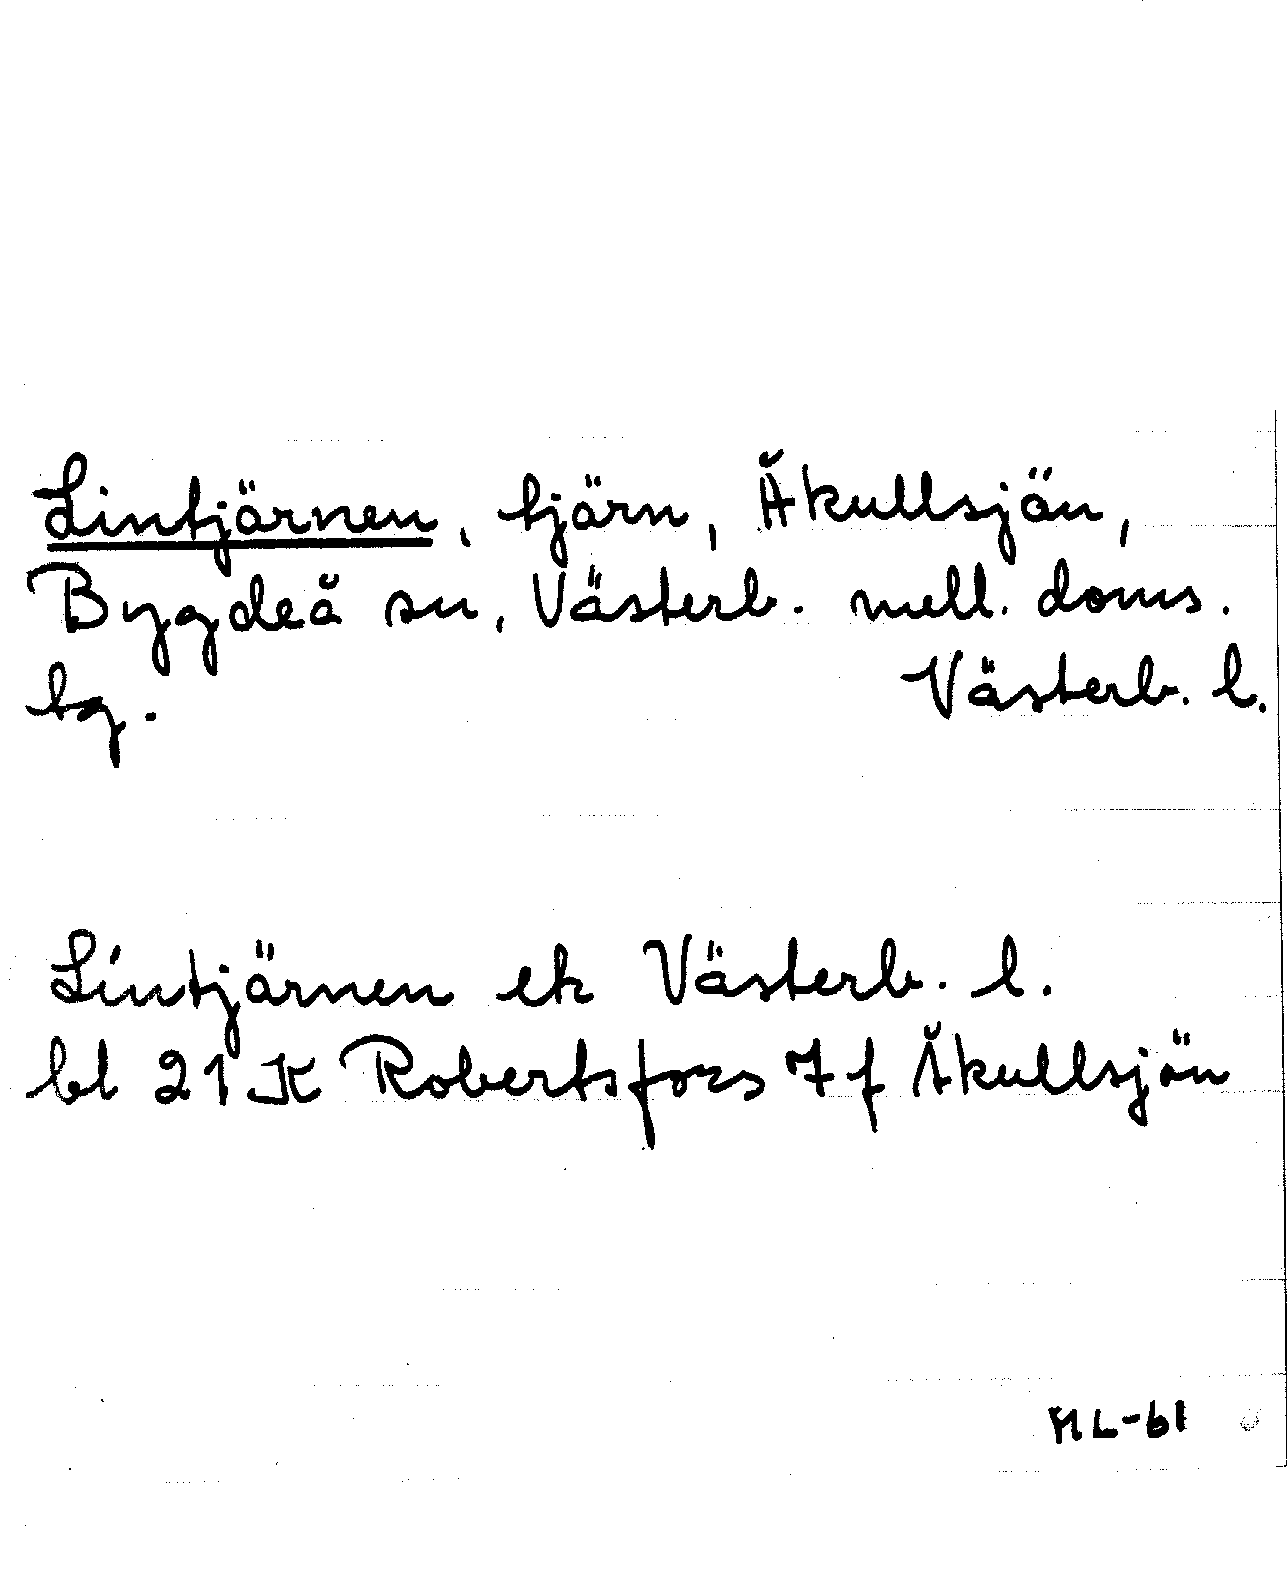 Lintjärnen, tjärn, Åkullsjön,
Bygdeå sn, Västerb. mell. doms.
bg. Västerb. l.
Lintjärnen ek Västerb. l.
bl 21 K Robertsfors 7 f Åkullsjön
ML-61